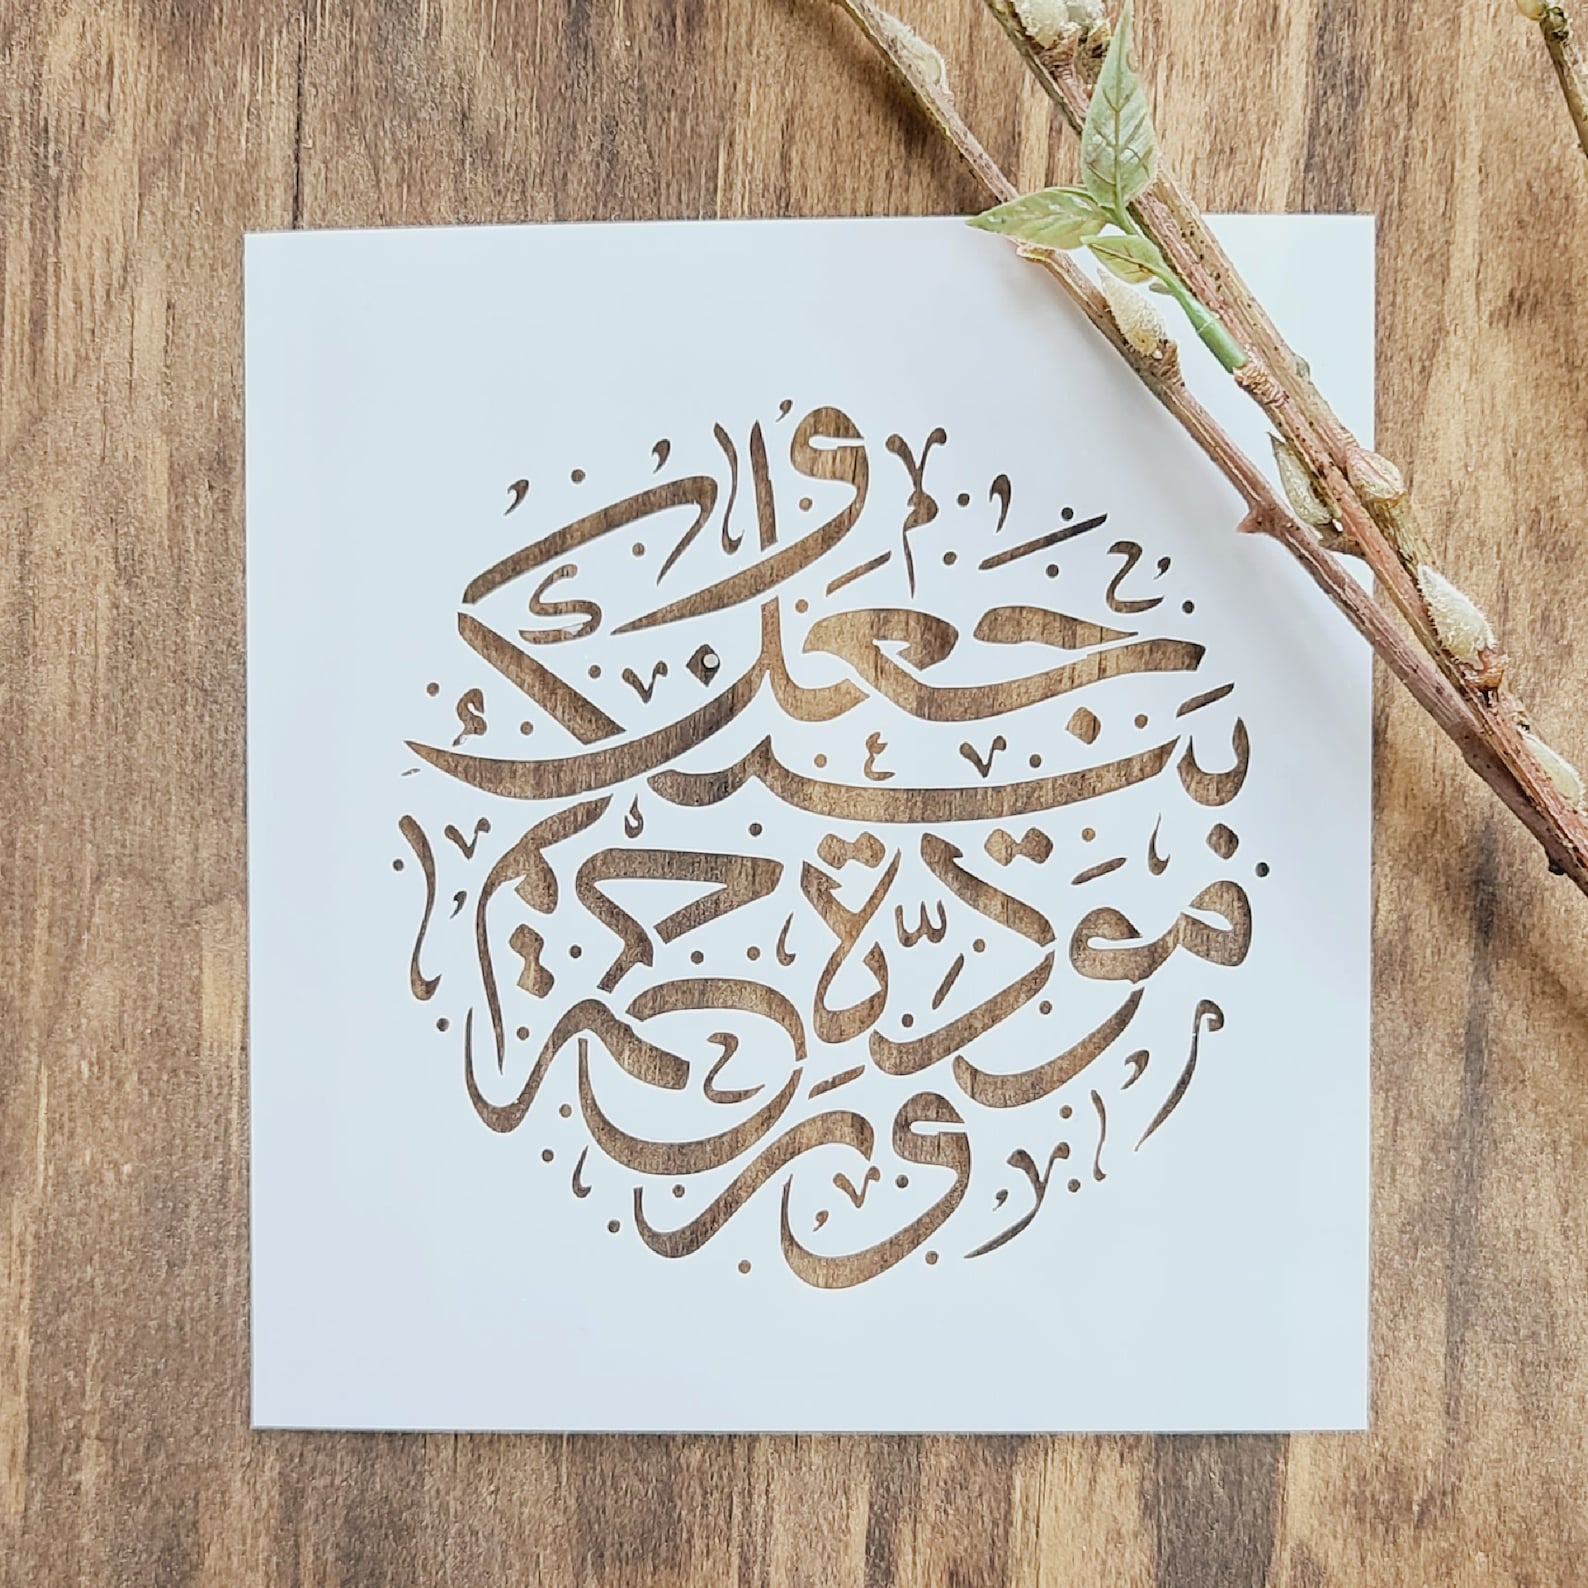 وَجَعَلَ
بَيْنَكُم
مَوَدَّةً
وَرَحْمَةً